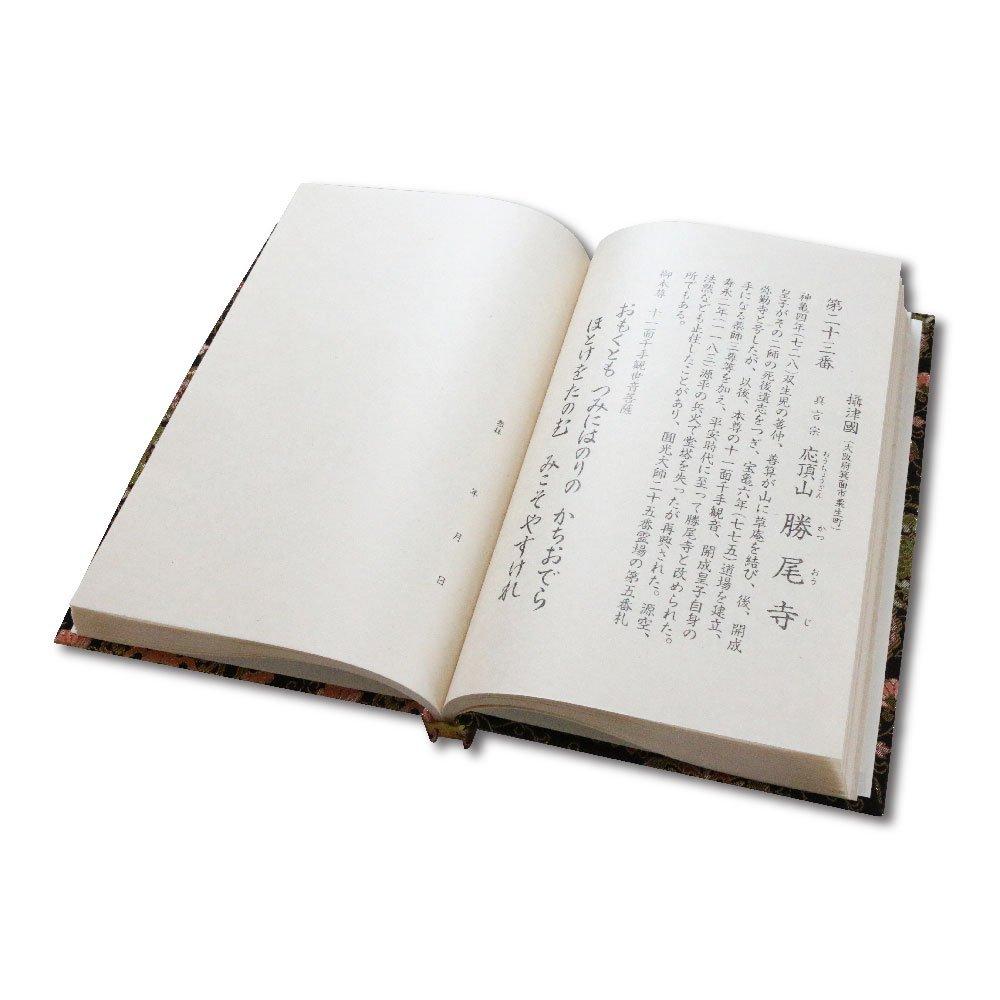 第二十三番
攝津國(大阪府箕面市粟生町)
真言宗 応頂山 勝尾寺
おうちょうざん かつ おう じ
神亀四年(七二八)双生児の善仲、善算が山に草庵を結び、後、開成
皇子がその二師の死後遺志をつぎ、宝亀六年(七七五)道場を建立、
弥勒寺と号したが、以後、本尊の十一面千手観音、開成皇子自身の
手になる薬師三尊等を加え、平安時代に至って勝尾寺と改められた。
寿永二年(一一八三)源平の兵火で堂塔を失ったが再興された。源空、
法然なども止住したことがあり、圓光大師二十五番霊場の第五番札
所でもある。
御本尊 十一面千手観世音菩薩
おもくとも つみにはのりの かちおでら
ほとけをたのむ みこそやすけれ
参拝
年 月 日